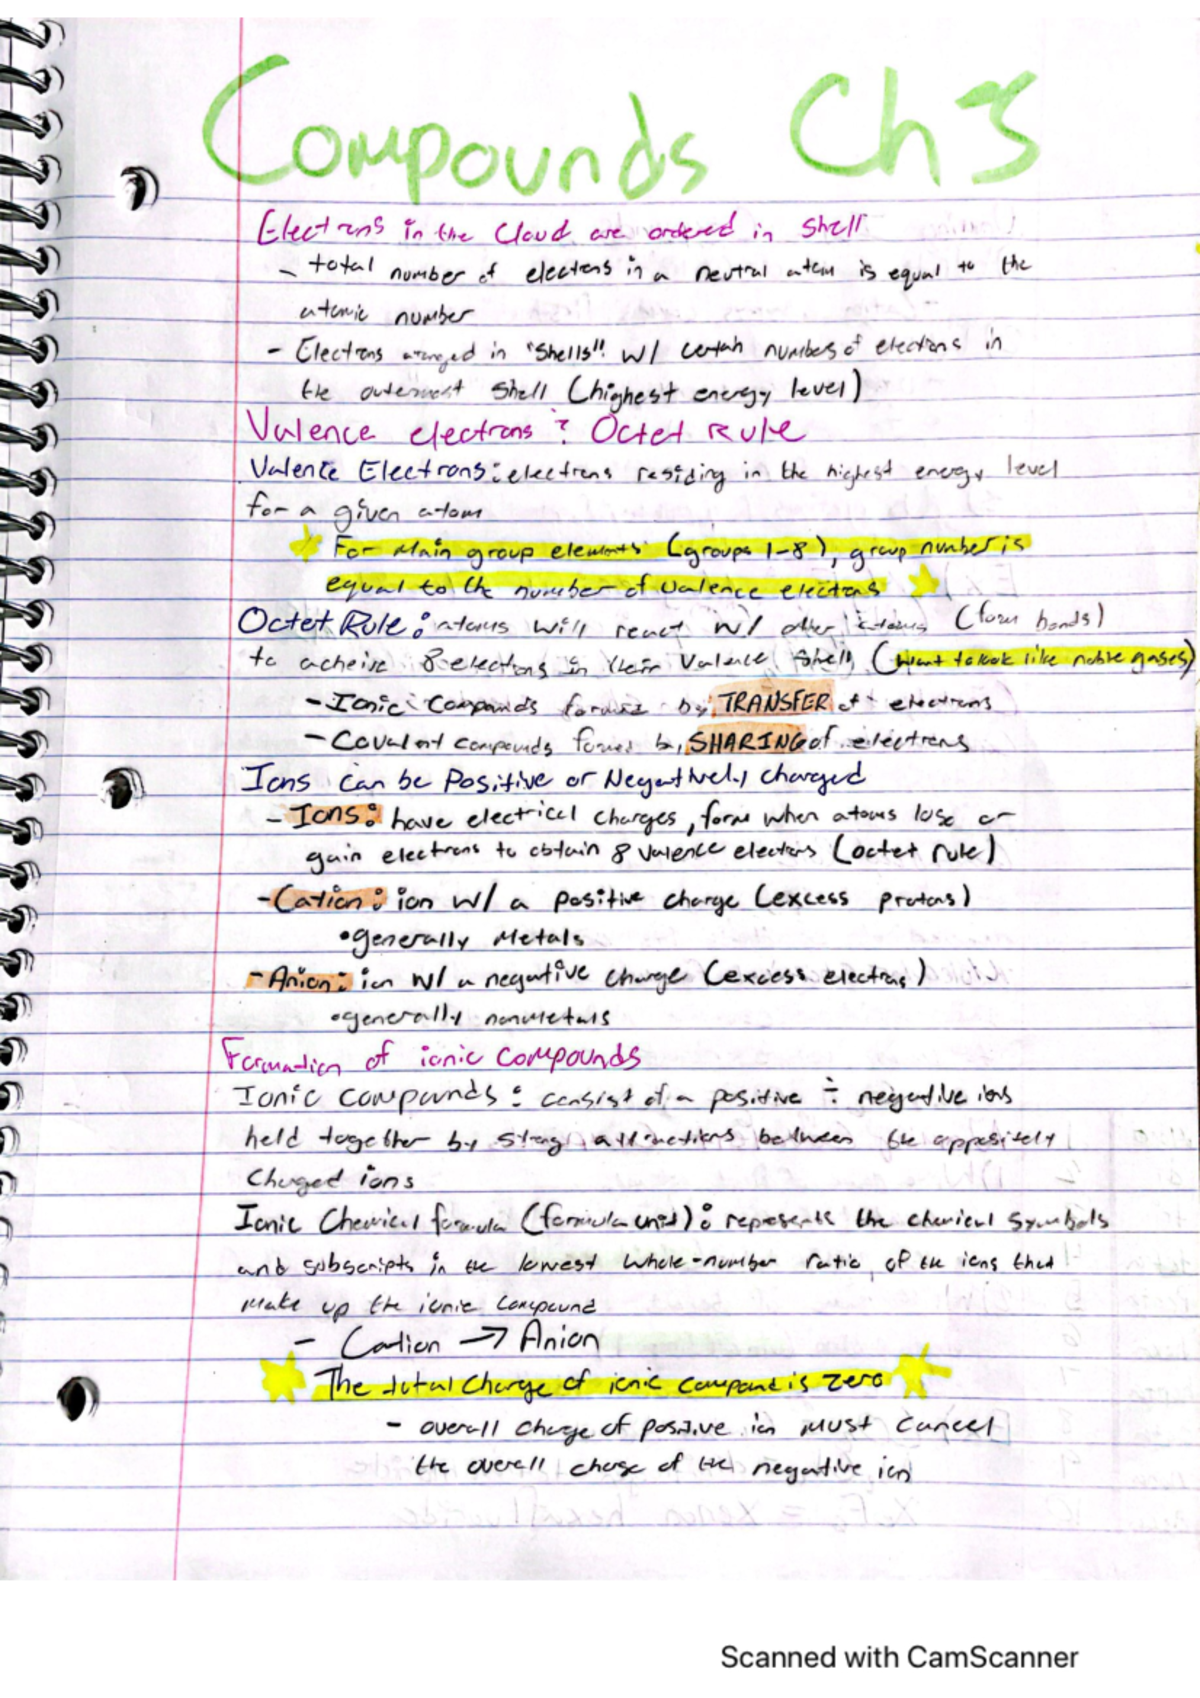 Compounds Ch 3
Electrons in the Cloud are ordered in Shell
- total number of electrons in a neutral atom is equal to the
atomic number
- Electrons arranged in "Shells" w/ certain numbers of electrons in
the outermost shell (highest energy level)
Valence electrons & Octet Rule
Valence Electrons: electrons residing in the highest energy level
for a given atom
For Main group elements (groups 1-8), group number is
equal to the number of valence electrons
Octet Rule: atoms will react w/ other atoms (form bonds)
to acheive 8 electrons in their Valence Shell (want to look like noble gases)
- Ionic Compounds formed by TRANSFER of electrons
- Covalent compounds formed by SHARING of electrons
Ions can be Positive or Negatively charged
- Ions: have electrical charges, form when atoms lose or
gain electrons to obtain 8 valence electrons (octet rule)
- Cation: ion w/ a positive charge (excess protons)
• generally Metals
- Anion: ion w/ a negative charge (excess electrons)
• generally nonmetals
Formation of ionic compounds
Ionic compounds: consist of a positive & negative ions
held together by strong attractions between the oppositely
Charged ions
Ionic Chemical formula (formula unit): represents the chemical symbols
and subscripts in the lowest whole-number ratio of the ions that
make up the ionic compound
- Cation → Anion
The total Charge of ionic compound is zero
- overall charge of positive ion must cancel
the overall charge of the negative ion
Scanned with CamScanner